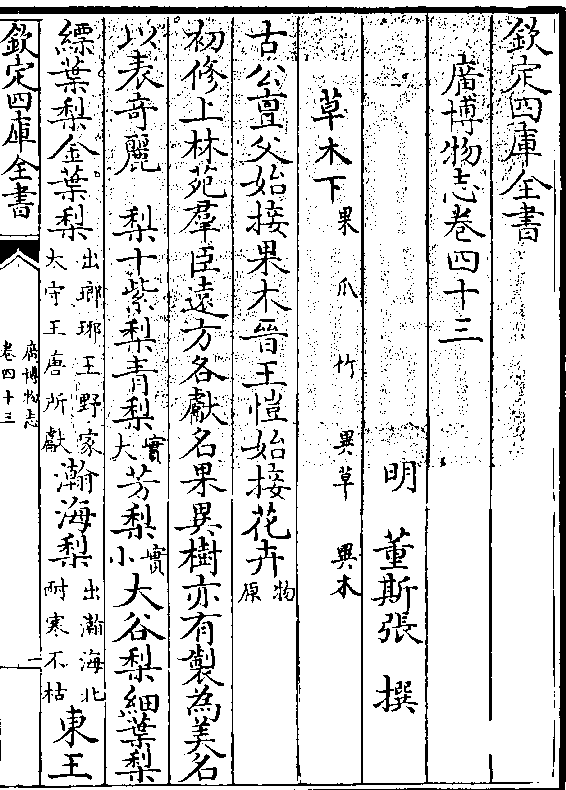 欽定四庫全書
廣博物志卷四十三
明 董斯張 撰
草木下 果 瓜 竹 異草 異木
古公亶父始接果木晉王愷始接花卉 物原
初修上林苑羣臣遠方各獻名果異樹亦有製為美名
以表奇麗 梨十紫梨青梨 實大 芳梨 實小 大谷梨細葉梨
縹葉梨金葉梨 出瑯琊王野家太守王唐所獻 瀚海梨 出瀚海北耐寒不枯 東王
欽定四庫全書
廣博物志
卷四十三
一